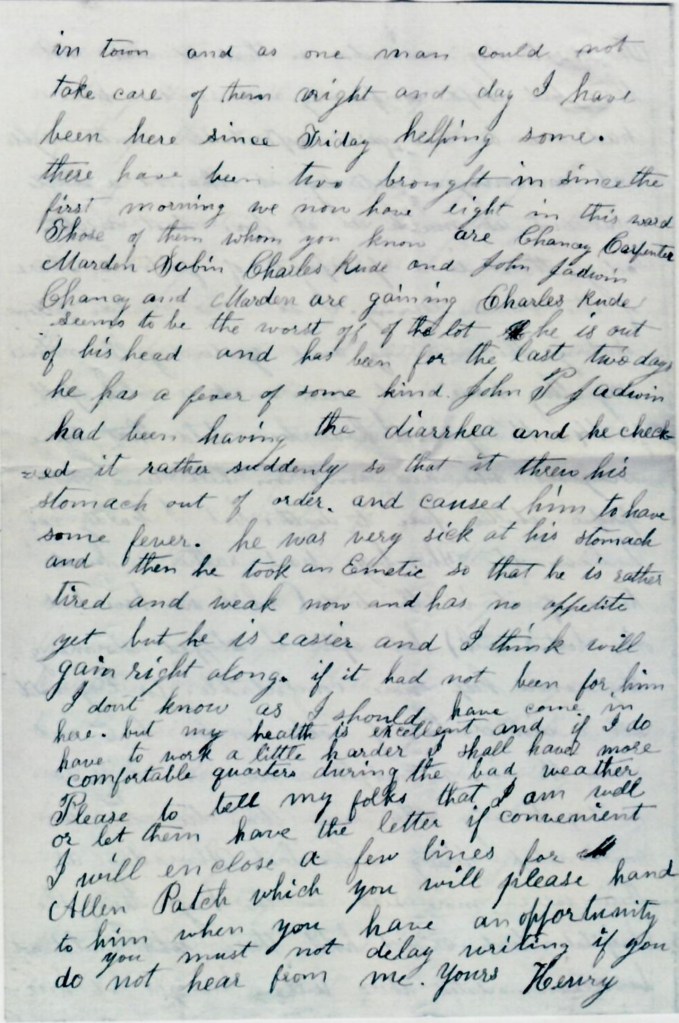 in town and as one man could not
take care of them night and day I have
been here since Friday helping some.
there have been two brought in since the
first morning we now have eight in this ward
Those of them whom you know are Chancy Carpenter
Marden Dabin Charles Rude and John Jadwin
Chancy and Marden are gaining Charles Rude
seems to be the worst off of the lot he is out
of his head and has been for the last two days
he has a fever of some kind. John P Jadwin
had been having the diarrhea and he check-
=ed it rather suddenly so that it threw his
stomach out of order. and caused him to have
some fever. he was very sick at his stomach
and then he took an Emetic so that he is rather
tired and weak now and has no appetite
yet but he is easier and I think will
gain right along. if it had not been for him
I dont know as I should have come in
here. but my health is excellent and if I do
have to work a little harder I shall have more
comfortable quarters during the bad weather
Please to tell my folks that I am well
or let them have the letter if convenient
I will enclose a few lines for
Allen Patch which you will please hand
to him when you have an opportunity
you must not delay writing if you
do not hear from me. Yours Henry